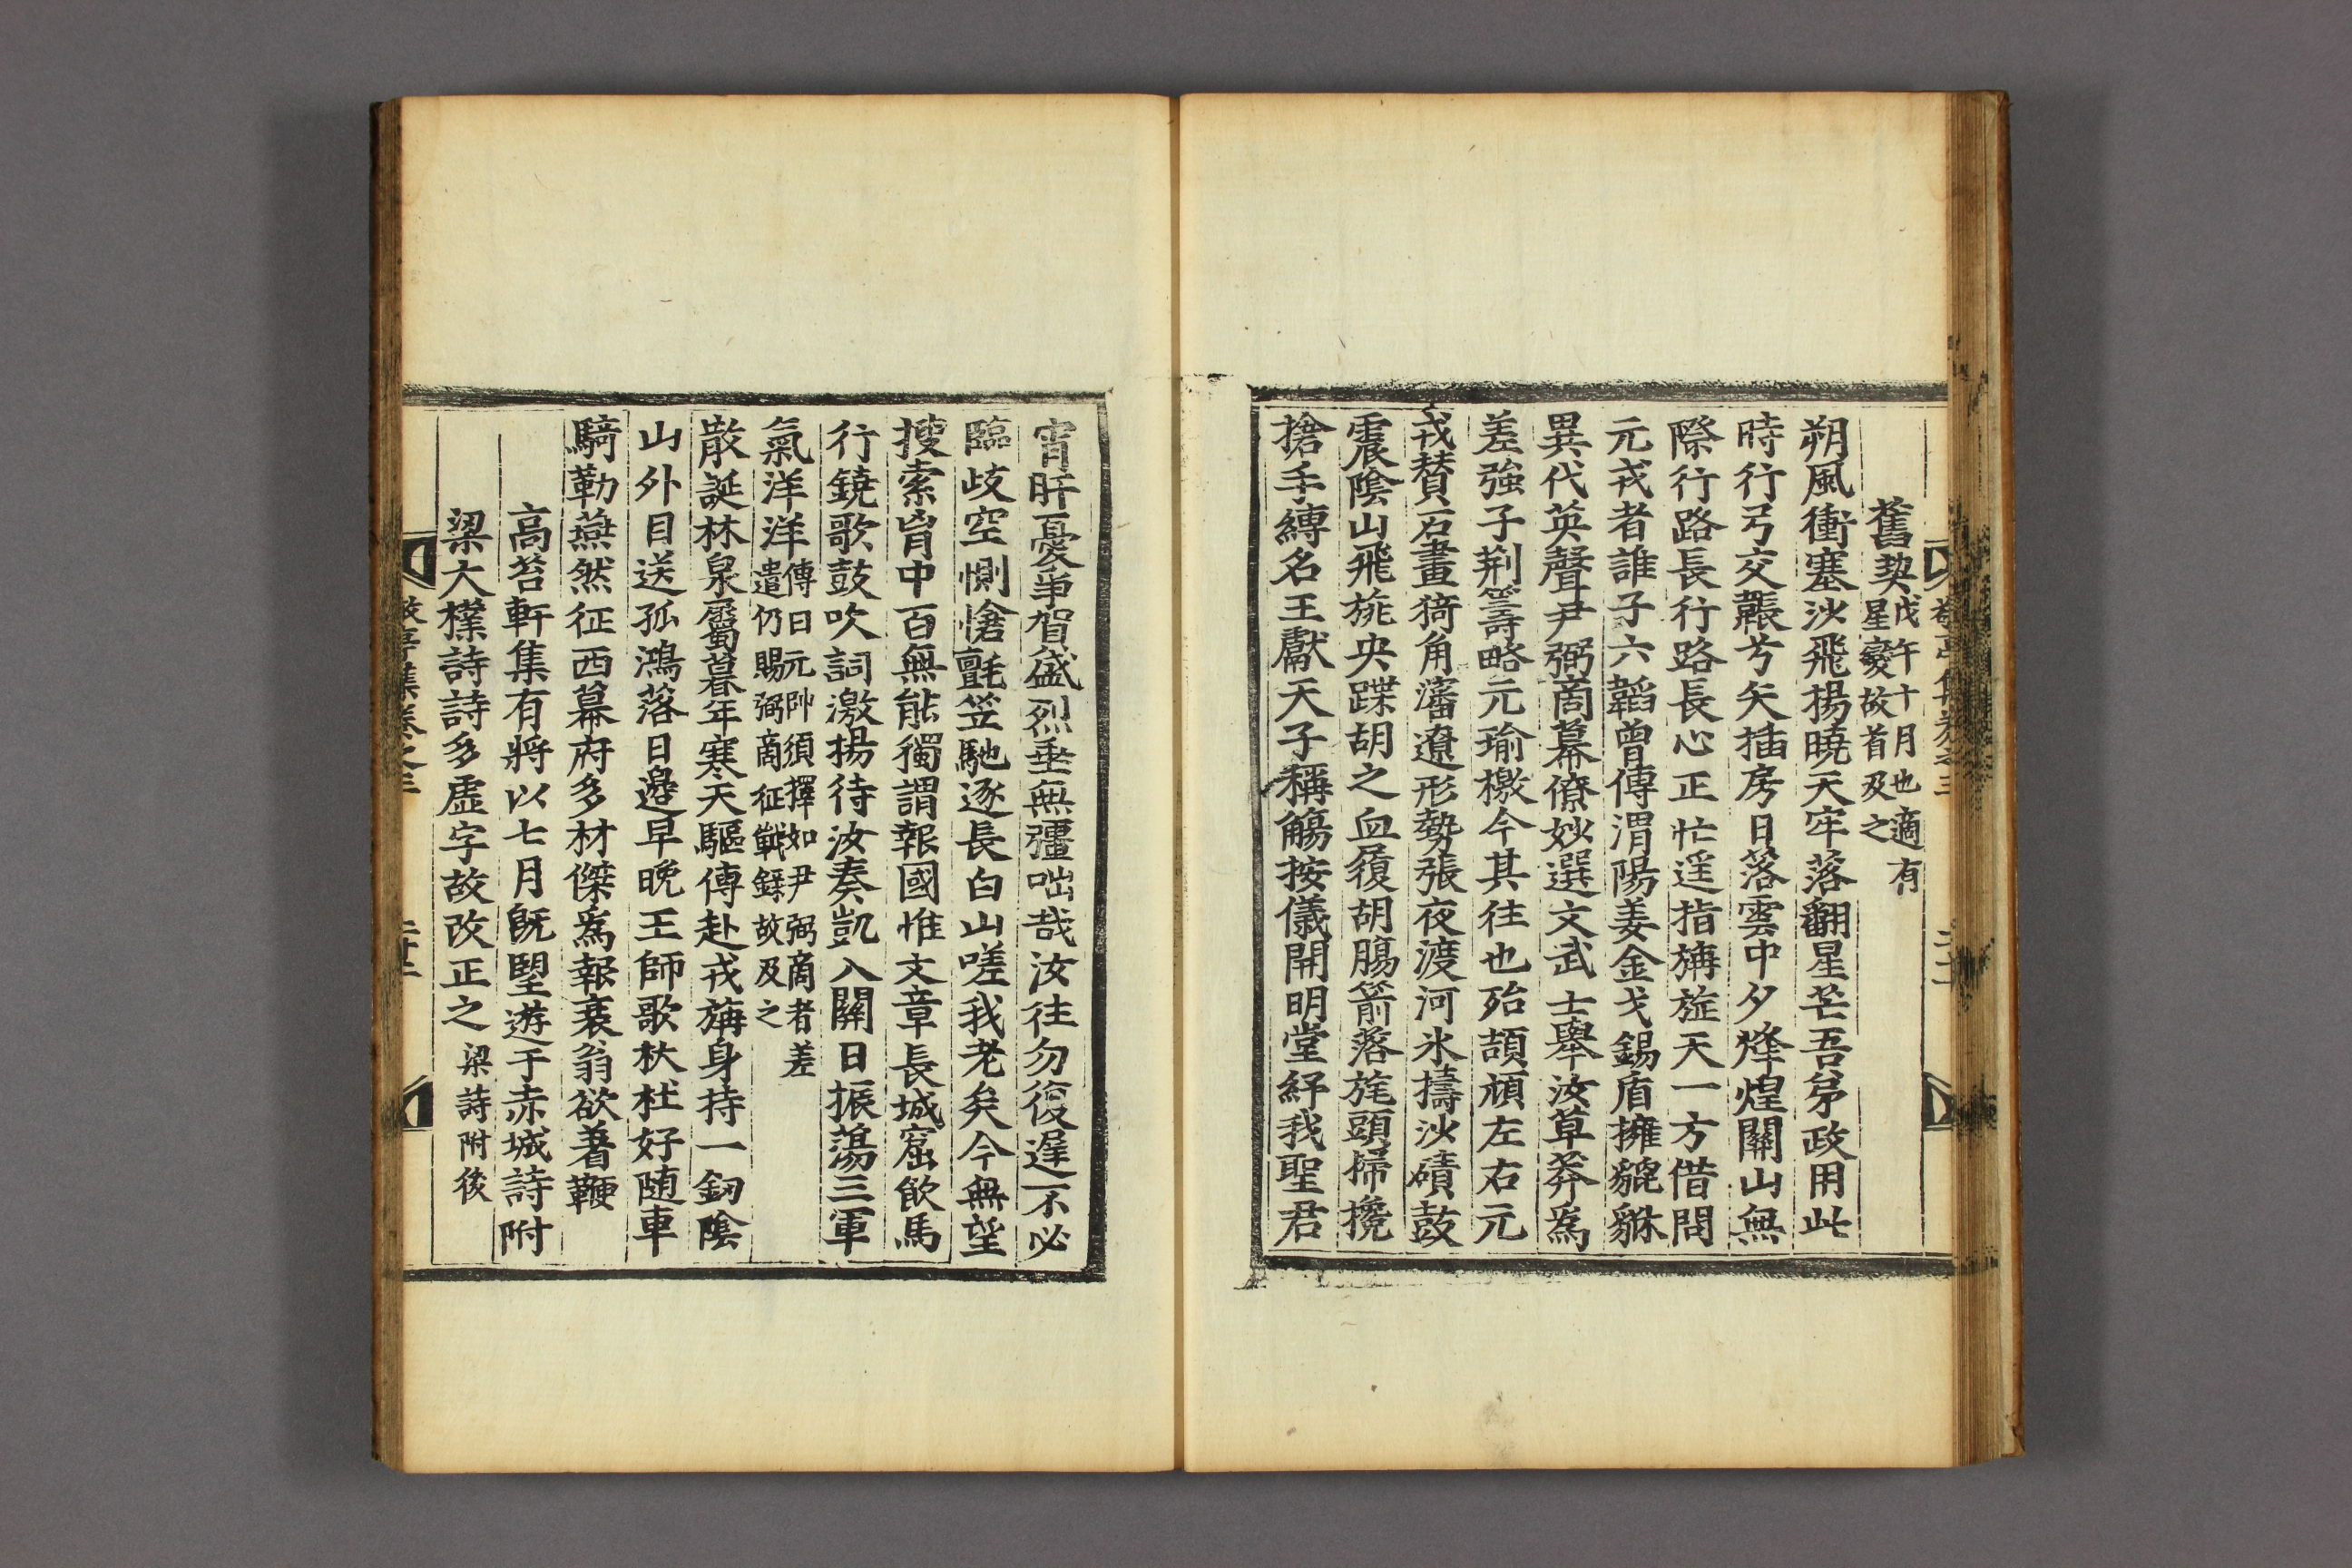 舊契戊午十月也適有
星變故首及之
朔風衝塞沙飛揚曉天牢落翻星芒吾弟政用此
時行弓交韔兮矢插房日落雲中夕烽煌關山無
際行路長行路長心正忙遥指旃旌天一方借問
元戎者誰子六韜曾傳渭陽姜金戈錫盾擁貔貅
異代英聲尹弼商幕僚妙選文武士舉汝草莽爲
差強子荆籌略元瑜檄今其徃也殆頡頏左右元
戎賛石畫猗角瀋遼形勢張夜渡河氷擣沙磧鼓
震陰山飛旐央蹀胡之血履胡膓箭落旄頭掃攙
搶手縛名王獻天子稱觴按儀開明堂紓我聖君
宵旰憂爭賀盛烈垂無彊咄哉汝徃勿復遅不必
臨歧空惻愴氈笠馳逐長白山嗟我老矣今無望
搜索胷中百無能獨謂報國惟文章長城窟飮馬
行鐃歌鼓吹詞激揚待汝奏凱入關日振蕩三軍
氣洋洋傳曰元帥須擇如尹弼商者差
遣仍賜弼商征戰錄故及之
散誕林泉屬暮年寒天驅傳赴戎旃身持一釰陰
山外目送孤鴻落日邉早晩王師歌杕杜好随車
騎勒燕然征西幕府多材傑爲報衰翁欲著鞭
高苔軒集有將以七月旣朢遊于赤城詩附
梁大樸詩詩多虛字故改正之梁詩附後
敬亭集卷之三
二十二